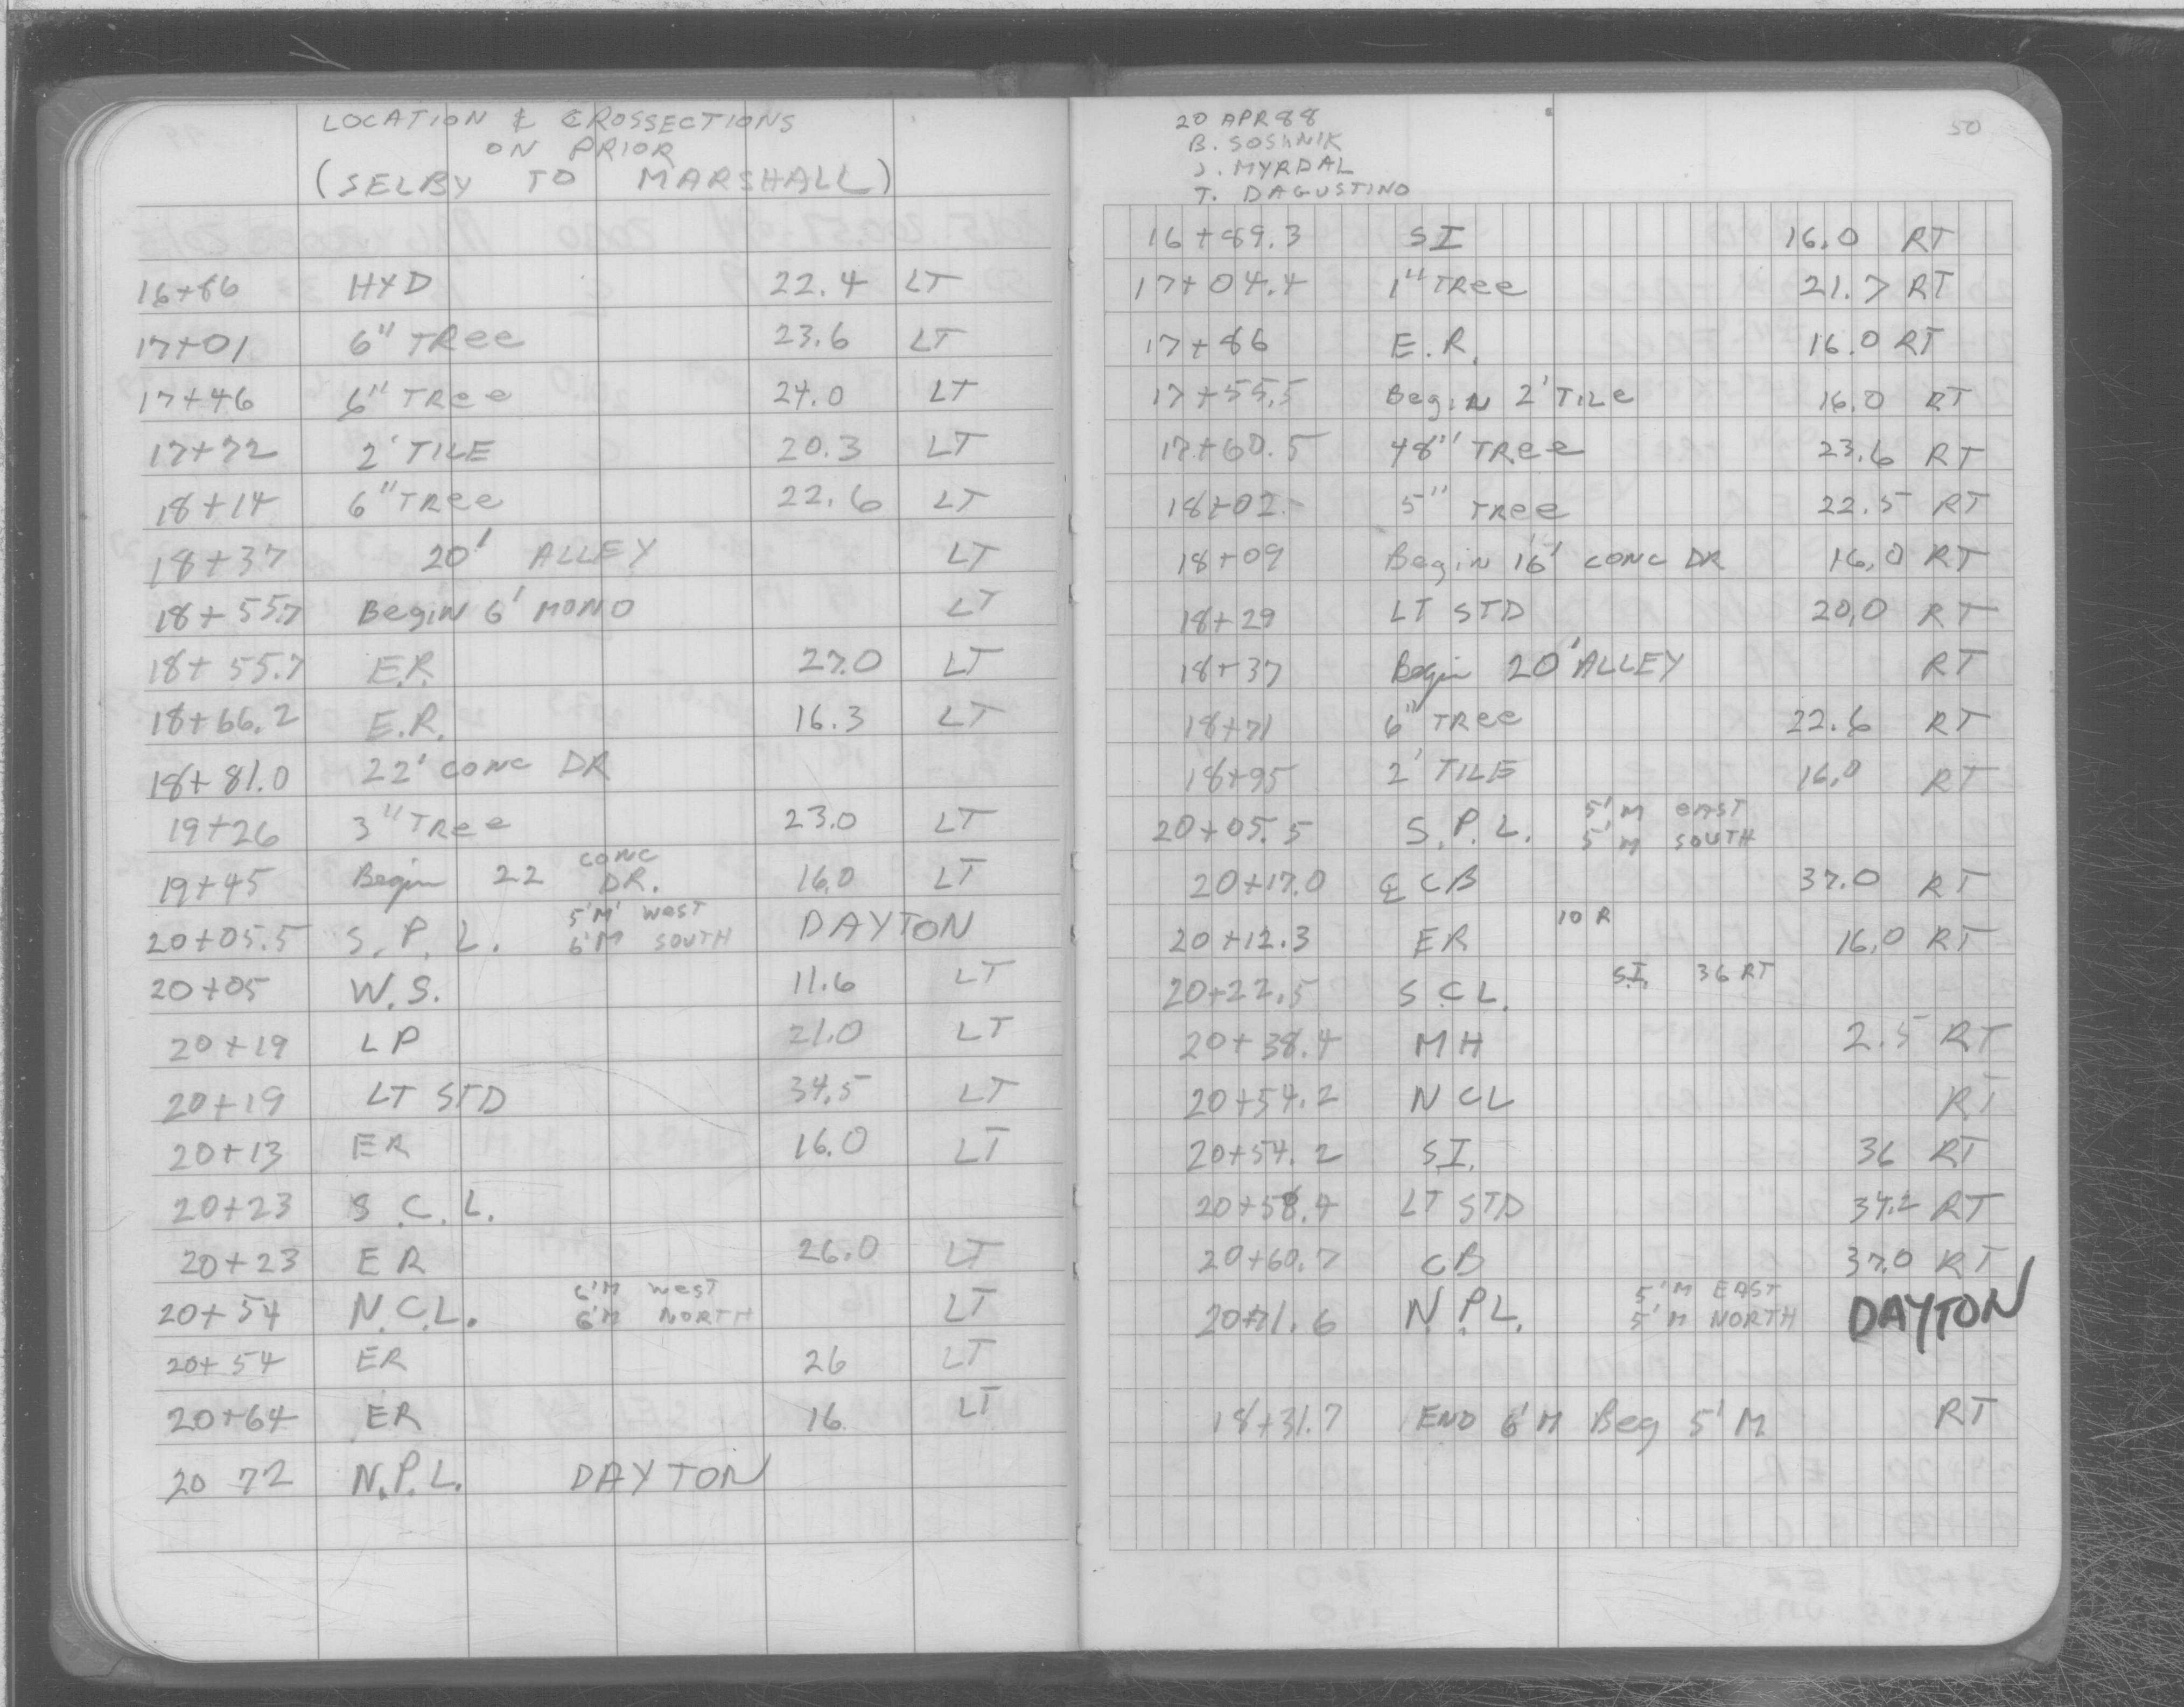 LOCATION & CROSSECTIONS
ON PRIOR
(SELBY TO MARSHALL)
16+86 HYD 22.4 LT
17+01 6" TRee 23.6 LT
17+46 6" TRee 24.0 LT
17+72 2' TILE 20.3 LT
18+14 6" TRee 22.6 LT
18+37 20' ALLEY LT
18+55.7 BegiN 6' MONO LT
18+55.7 E.R. 27.0 LT
18+66.2 E.R. 16.3 LT
18+81.0 22' CONC DR
19+26 3" TRee 23.0 LT
19+45 Begin 22 CONC DR. 16.0 LT
20+05.5 S.P.L. 5'M' west 6'M SOUTH DAYTON
20+05 W.S. 11.6 LT
20+19 LP 21.0 LT
20+19 LT STD 34.5 LT
20+13 ER 16.0 LT
20+23 S.C.L.
20+23 ER 26.0 LT
20+54 N.C.L. 6'M west 6'M NORTH LT
20+54 ER 26 LT
20+64 ER 16 LT
20 72 N.P.L. DAYTON
20 APR 88
B. SOSHNIK
J. MYRDAL
T. DAGUSTINO
50
16+89.3 SI 16.0 RT
17+04.4 1" TRee 21.7 RT
17+86 E.R. 16.0 RT
17+55.5 BegiN 2' TILe 16.0 RT
17+60.5 48" TRee 23.6 RT
18+02.- 5" TRee 22.5 RT
18+09 BegiN 16' CONC DR 16.0 RT
18+29 LT STD 20.0 RT
18+37 Begin 20' ALLEY RT
18+71 6" TRee 22.6 RT
18+95 2' TILE 16.0 RT
20+05.5 S.P.L. 5'M eAST 5'M SOUTH
20+17.0 ℄ CB 37.0 RT
20+12.3 ER 10 R 16.0 RT
20+22.5 S.C.L. S.I. 36 RT
20+38.4 MH 2.5 RT
20+54.2 NCL RT
20+54.2 S.I. 36 RT
20+58.4 LT STD 34.2 RT
20+60.7 CB 37.0 RT
20+71.6 N.P.L. 5'M EAST 5'M NORTH DAYTON
18+31.7 END 6'M Beg 5'M RT